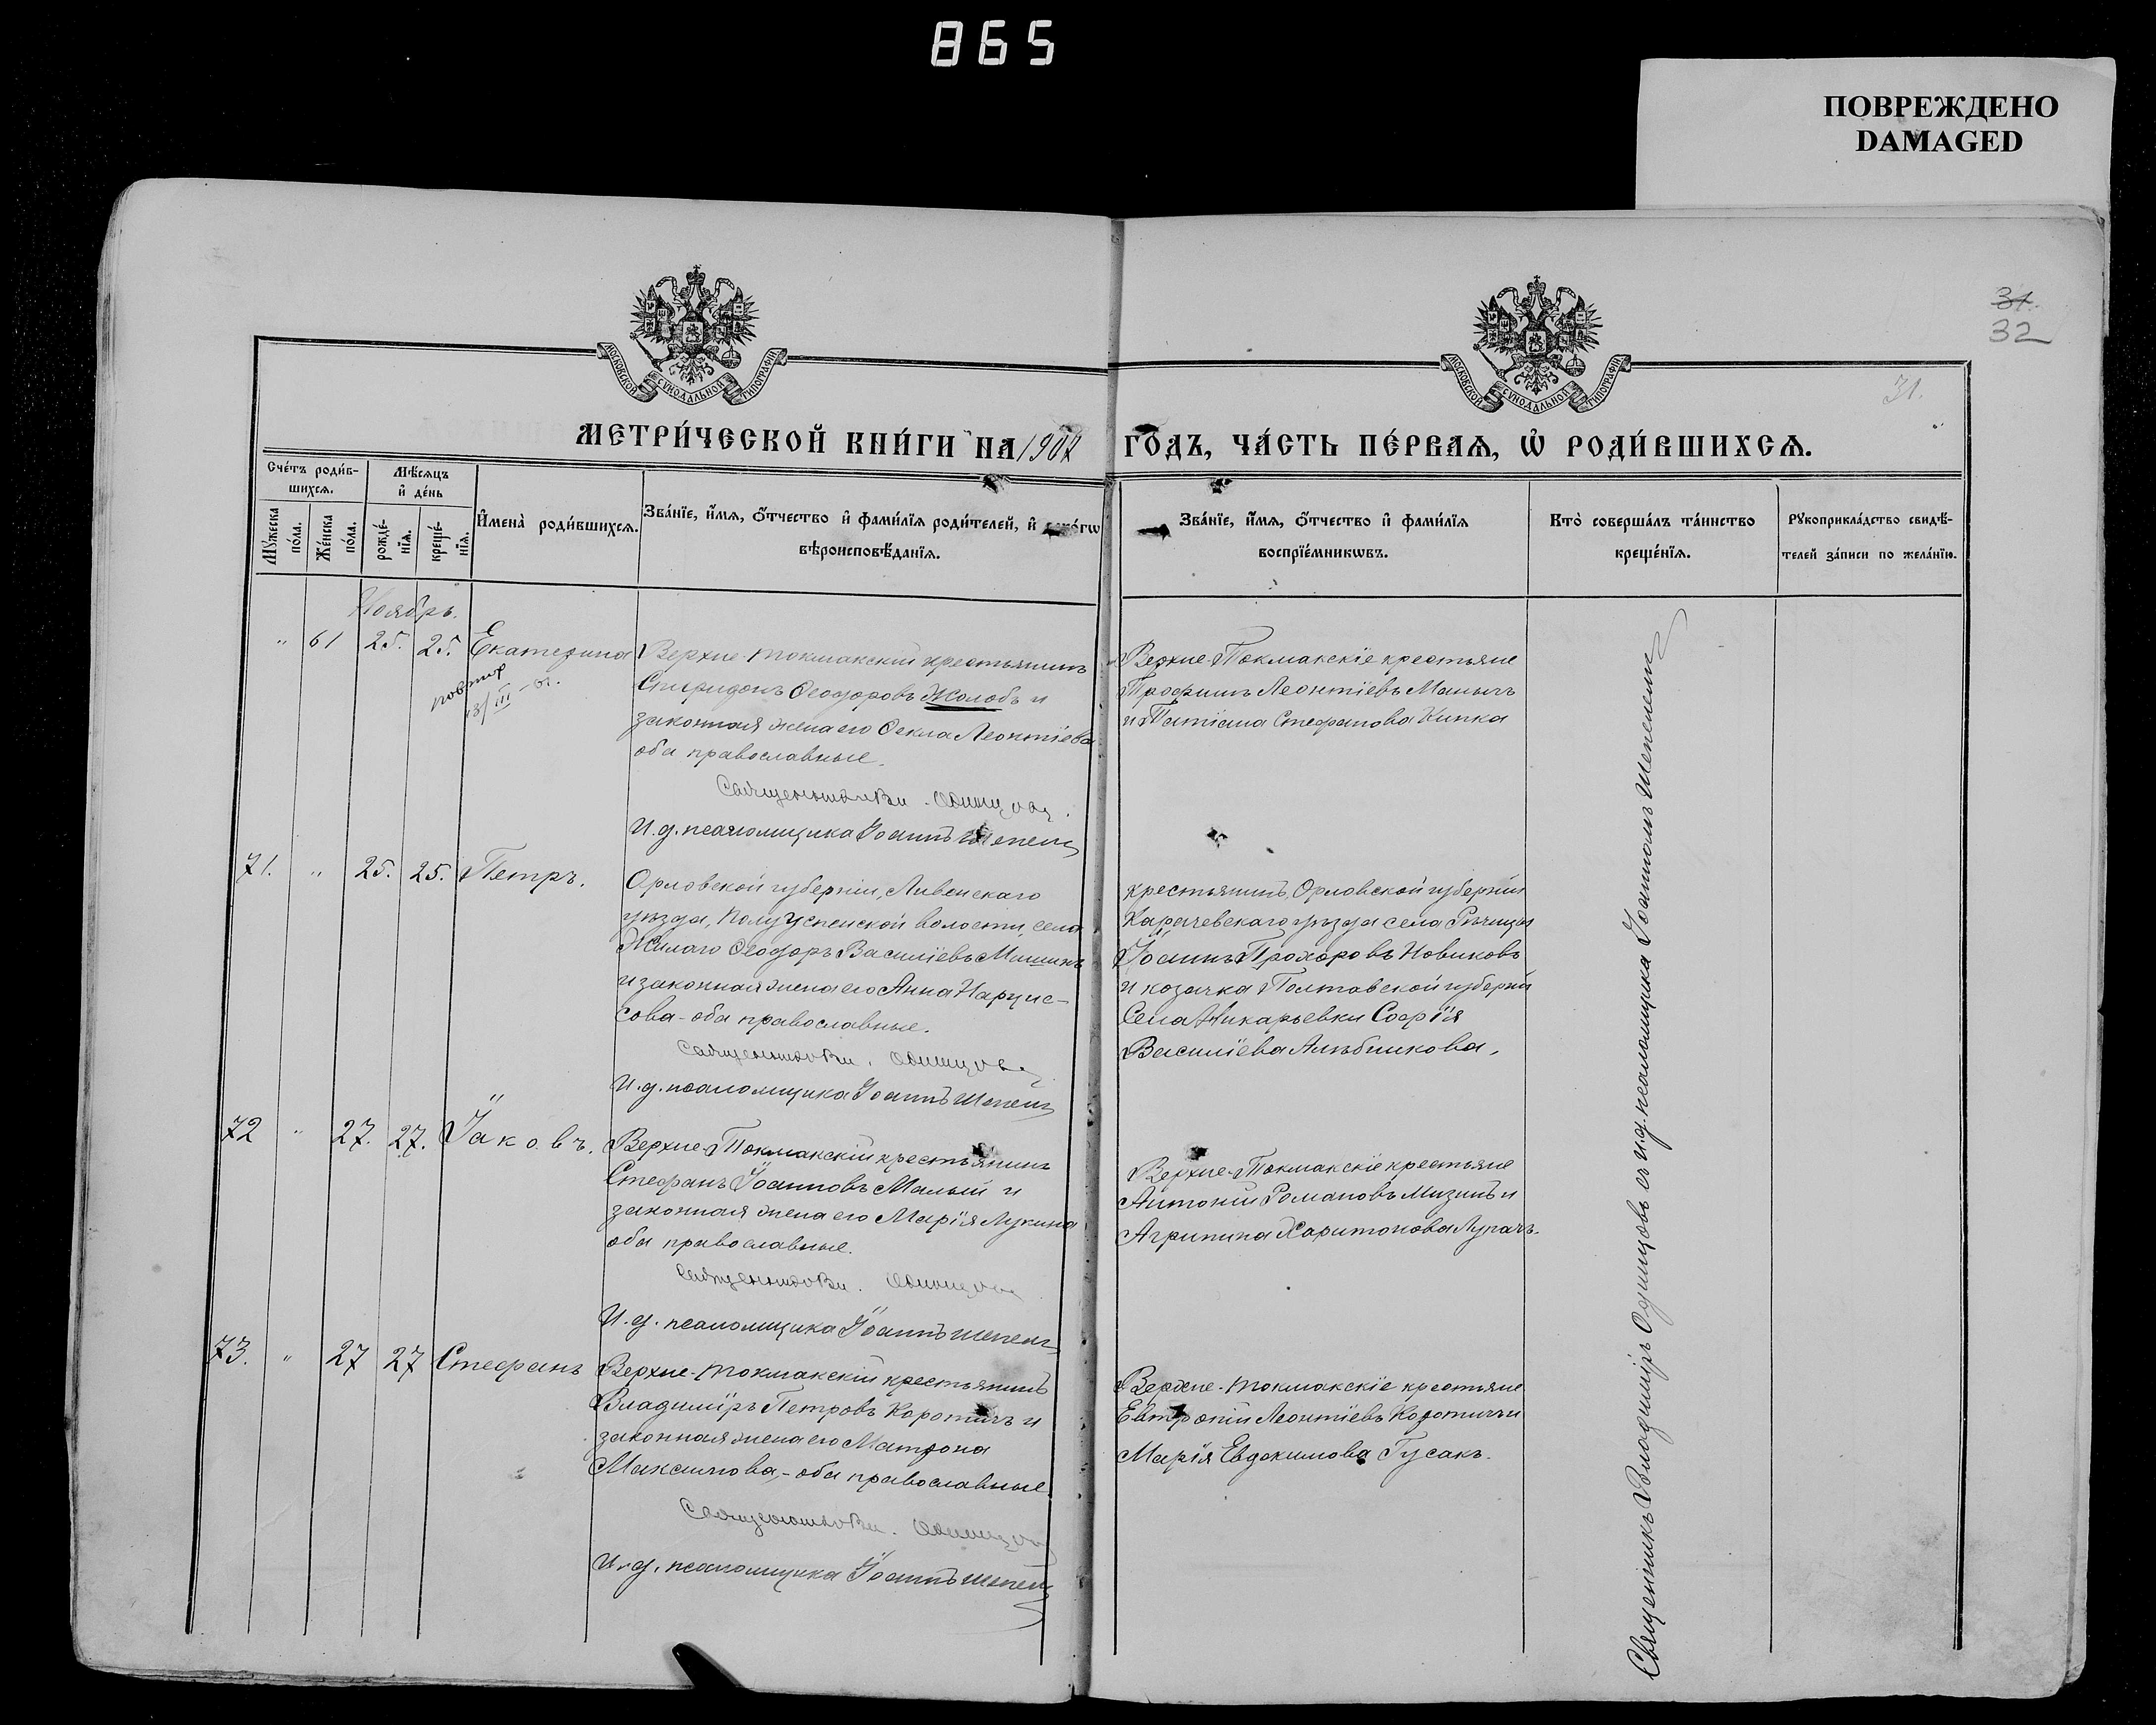 865
ПОВРЕЖДЕНО
DAMAGED
31.
32
31.
МОСКОВСКОЙ СУНОДАЛЬНОЙ ТИПОГРАФІИ
МОСКОВСКОЙ СУНОДАЛЬНОЙ ТИПОГРАФІИ
МЕТРИ́ЧЕСКОЙ КНИ́ГИ НА 1902 ГО́ДЪ, ЧА́СТЬ ПЕ́РВАѦ, Ѡ҆ РОДИ́ВШИХСѦ.
Сче́тъ роди́в-
шихсѧ.
Мꙋ́жеска
по́ла.
Же́нска
по́ла.
Мѣ́сѧцъ
и҆ де́нь
рожде́-
нїѧ.
креще́-
нїѧ.
И҆мена̀ роди́вшихсѧ.
Зва́нїе, и҆́мѧ, ѻ҆́тчество и҆ фами́лїѧ роди́телей, и҆ како́гѡ
вѣроисповѣ́данїѧ.
Зва́нїе, и҆́мѧ, ѻ҆́тчество и҆ фами́лїѧ
воспрїе́мникѡвъ.
Кто̀ соверша́лъ та́инство
креще́нїѧ.
Рꙋкоприкла́дство свидѣ́-
телей за́писи по жела́нїю.
Ноябрь.
" 61 25. 25. Екатерина
повтор
Верхне-Токмакскій крестьянинъ
Спиридонъ Ѳеодоровъ Жолобъ и
законная жена его Ѳекла Леонтіева
оба православные.
Священникъ Вл. Одинцовъ.
И. д. псаломщика Іоаннъ Шепель
Верхне-Токмакскіе крестьяне
Трофимъ Леонтіевъ Малычъ
и Татіана Стефанова Кипка
71. " 25. 25. Петръ.
Орловской губерніи, Ливенскаго
уѣзда, Полууспенской волости, села
Жилаго Ѳеодоръ Василіевъ Мишинъ
и законная жена его Анна Нарцис-
сова - оба православные.
Священникъ Вл. Одинцовъ
И. д. псаломщика Іоаннъ Шепель
крестьянинъ Орловской губерніи
Карачевскаго уѣзда села Рѣчицы
Іоаннъ Прохоровъ Новиковъ
и козачка Полтавской губерніи
Села
Софія
Василіева
72 " 27. 27. Іаковъ.
Верхне-Токмакскій крестьянинъ
Стефанъ Іоанновъ Малый и
законная жена его Марія Лукина
оба православные.
Священникъ Вл. Одинцовъ
И. д. псаломщика Іоаннъ Шепель
Верхне-Токмакскіе крестьяне
Антоній Романовъ Мизинъ и
Агрипина Харитонова Лупачъ.
73. " 27 27 Стефанъ
Верхне-Токмакскій крестьянинъ
Владиміръ Петровъ Коротичъ и
законная жена его Матрона
Максимова, - оба православные.
Священникъ Вл. Одинцовъ
И. д. псаломщика Іоаннъ Шепель
Верхне-Токмакскіе крестьяне
Евтропій Леонтіевъ Коротичъ и
Марія Евдокимова Гусакъ.
Священникъ Владиміръ Одинцовъ съ и. д. псаломщика Іоанномъ Шепелемъ